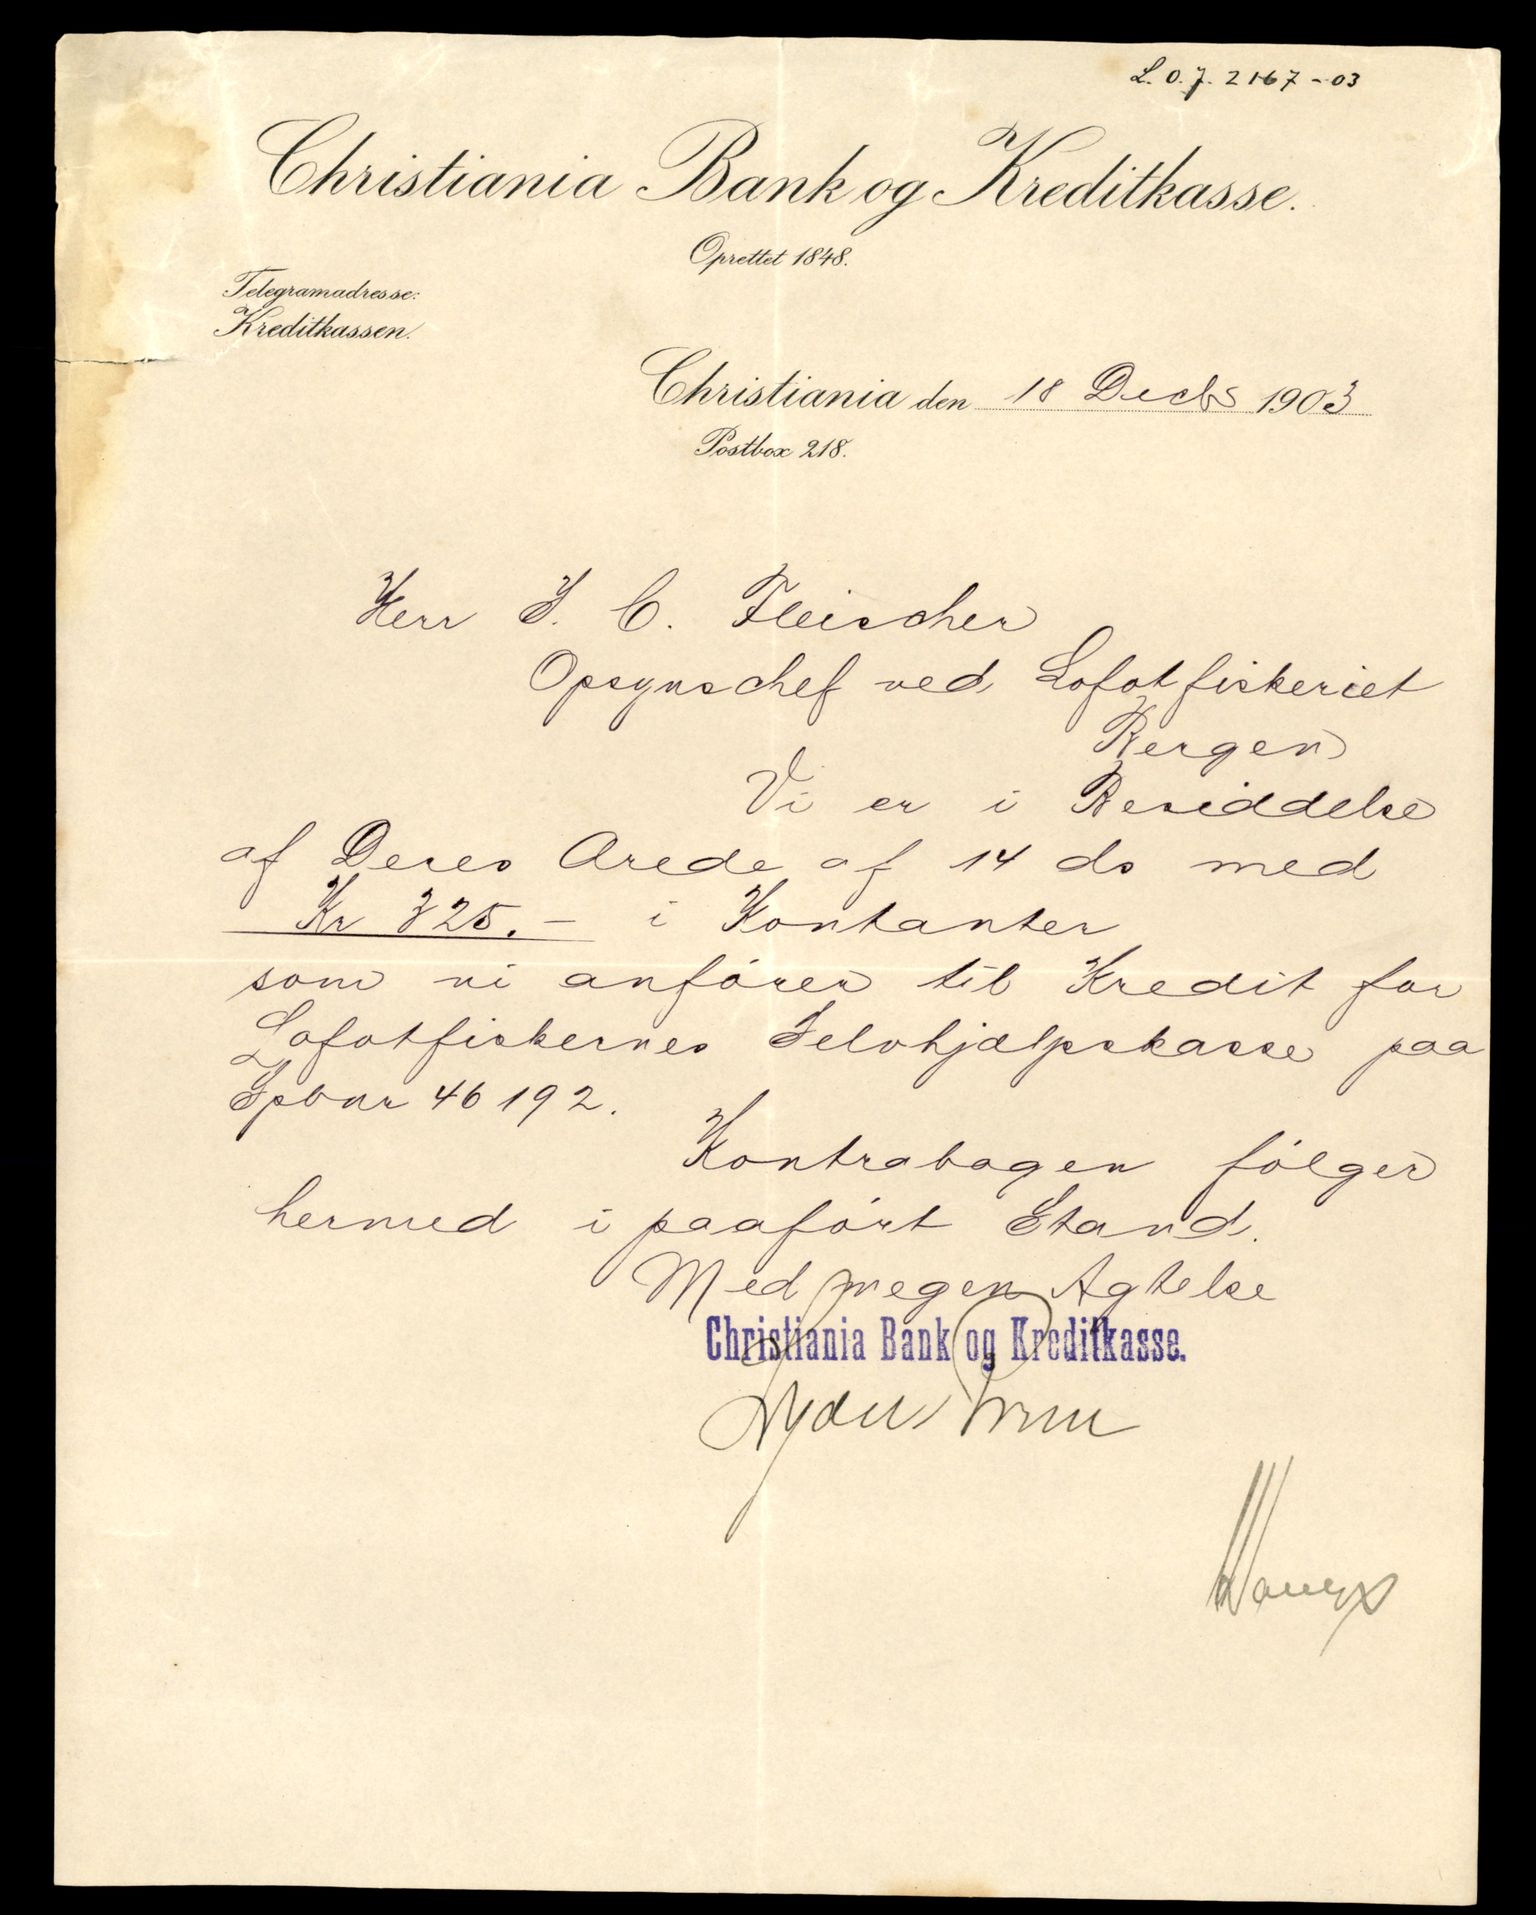 L. O. J. 2167 - 03
Christiania Bank og Kreditkasse.
Oprettet 1848.
Telegramadresse:
Kreditkassen.
Christiania den 18 Decbr 1903
Postbox 218.
Herr J. C. Fleischer
Opsynschef ved Lofotfiskeriet
Bergen
Vi er i Besiddelse
af Deres Ærede af 14 ds med
Kr 325.- i Kontanter
som vi anfører til Kredit for
Lofotfiskernes Selvhjælpskasse paa
Spbnr 46192.
Kontrabogen følger
hermed i paaført Stand.
Med megen Agtelse
Christiania Bank og Kreditkasse.